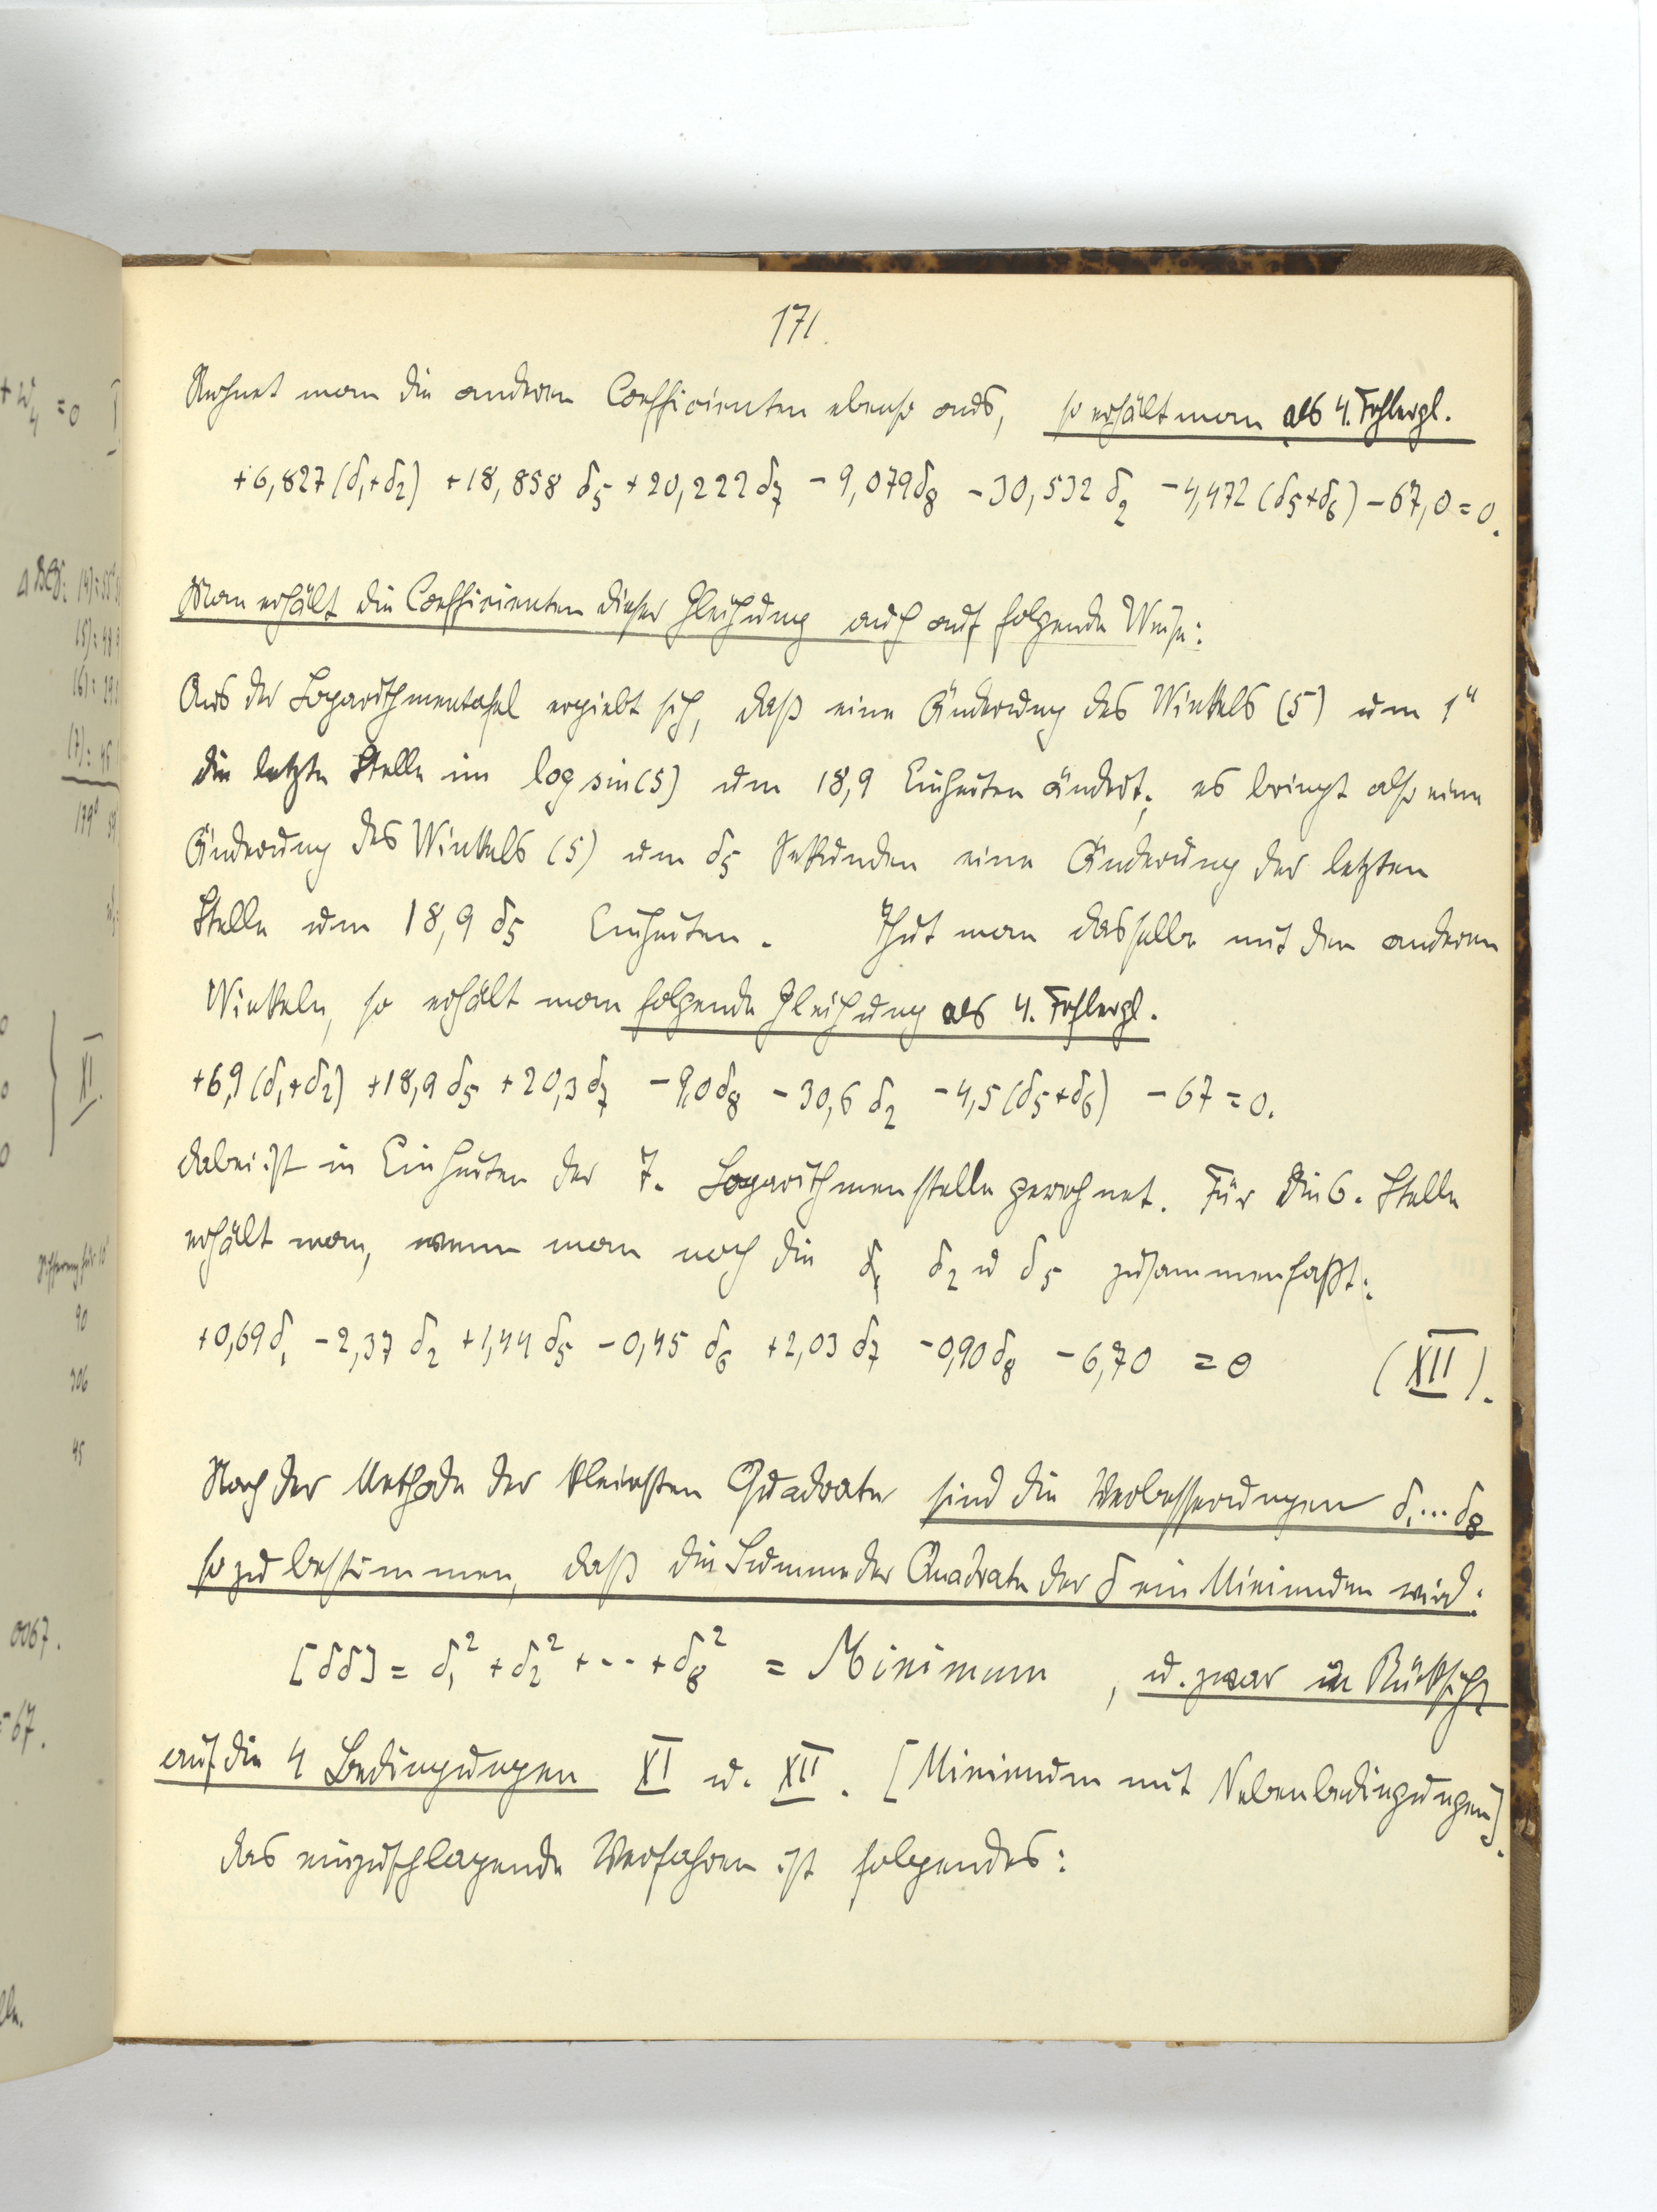 171.
Rechnet man die anderen Coefficienten ebenso aus, so erhält man als 4. Fehlergl.
+6,827(δ₁+δ₂) +18,858 δ₅ +20,222 δ₇ −9,079 δ₈ −30,532 δ₂ −4,472(δ₅+δ₆) −67,0=0.
Man erhält die Coefficienten dieser Gleichung auch auf folgende Weise:
Aus der Logarithmentafel ergiebt sich, daß eine Änderung des Winkels (5) um 1"
die letzte Stelle im log sin(5) um 18,9 Einheiten ändert; es bringt also eine
Änderung des Winkels (5) um δ₅ Sekunden eine Änderung der letzten
Stelle um 18,9 δ₅ Einheiten. Thut man dasselbe mit den anderen
Winkeln, so erhält man folgende Gleichung als 4. Fehlergl.
+6,9(δ₁+δ₂) +18,9 δ₅ +20,3 δ₇ −9,0 δ₈ −30,6 δ₂ −4,5(δ₅+δ₆) −67=0.
dabei ist in Einheiten der 7. Logarithmenstelle gerechnet. Für die 6. Stelle
erhält man, wenn man noch die δ₁ δ₂ u δ₅ zusammenfaßt:
+0,69 δ₁ −2,37 δ₂ +1,44 δ₅ −0,45 δ₆ +2,03 δ₇ −0,90 δ₈ −6,70 = 0 (XII).
Nach der Methode der kleinsten Quadrate sind die Verbesserungen δ₁...δ₈
so zu bestimmen, daß die Summe der Quadrate der δ ein Minimum wird:
[δδ] = δ₁² + δ₂² + ... + δ₈² = Minimum, u. zwar in Rücksicht
auf die 4 Bedingungen XI u. XII. [Minimum mit Nebenbedingungen].
das einzuschlagende Verfahren ist folgendes:
+w₄ =0
XI.
90
306
45
0067.
=67.